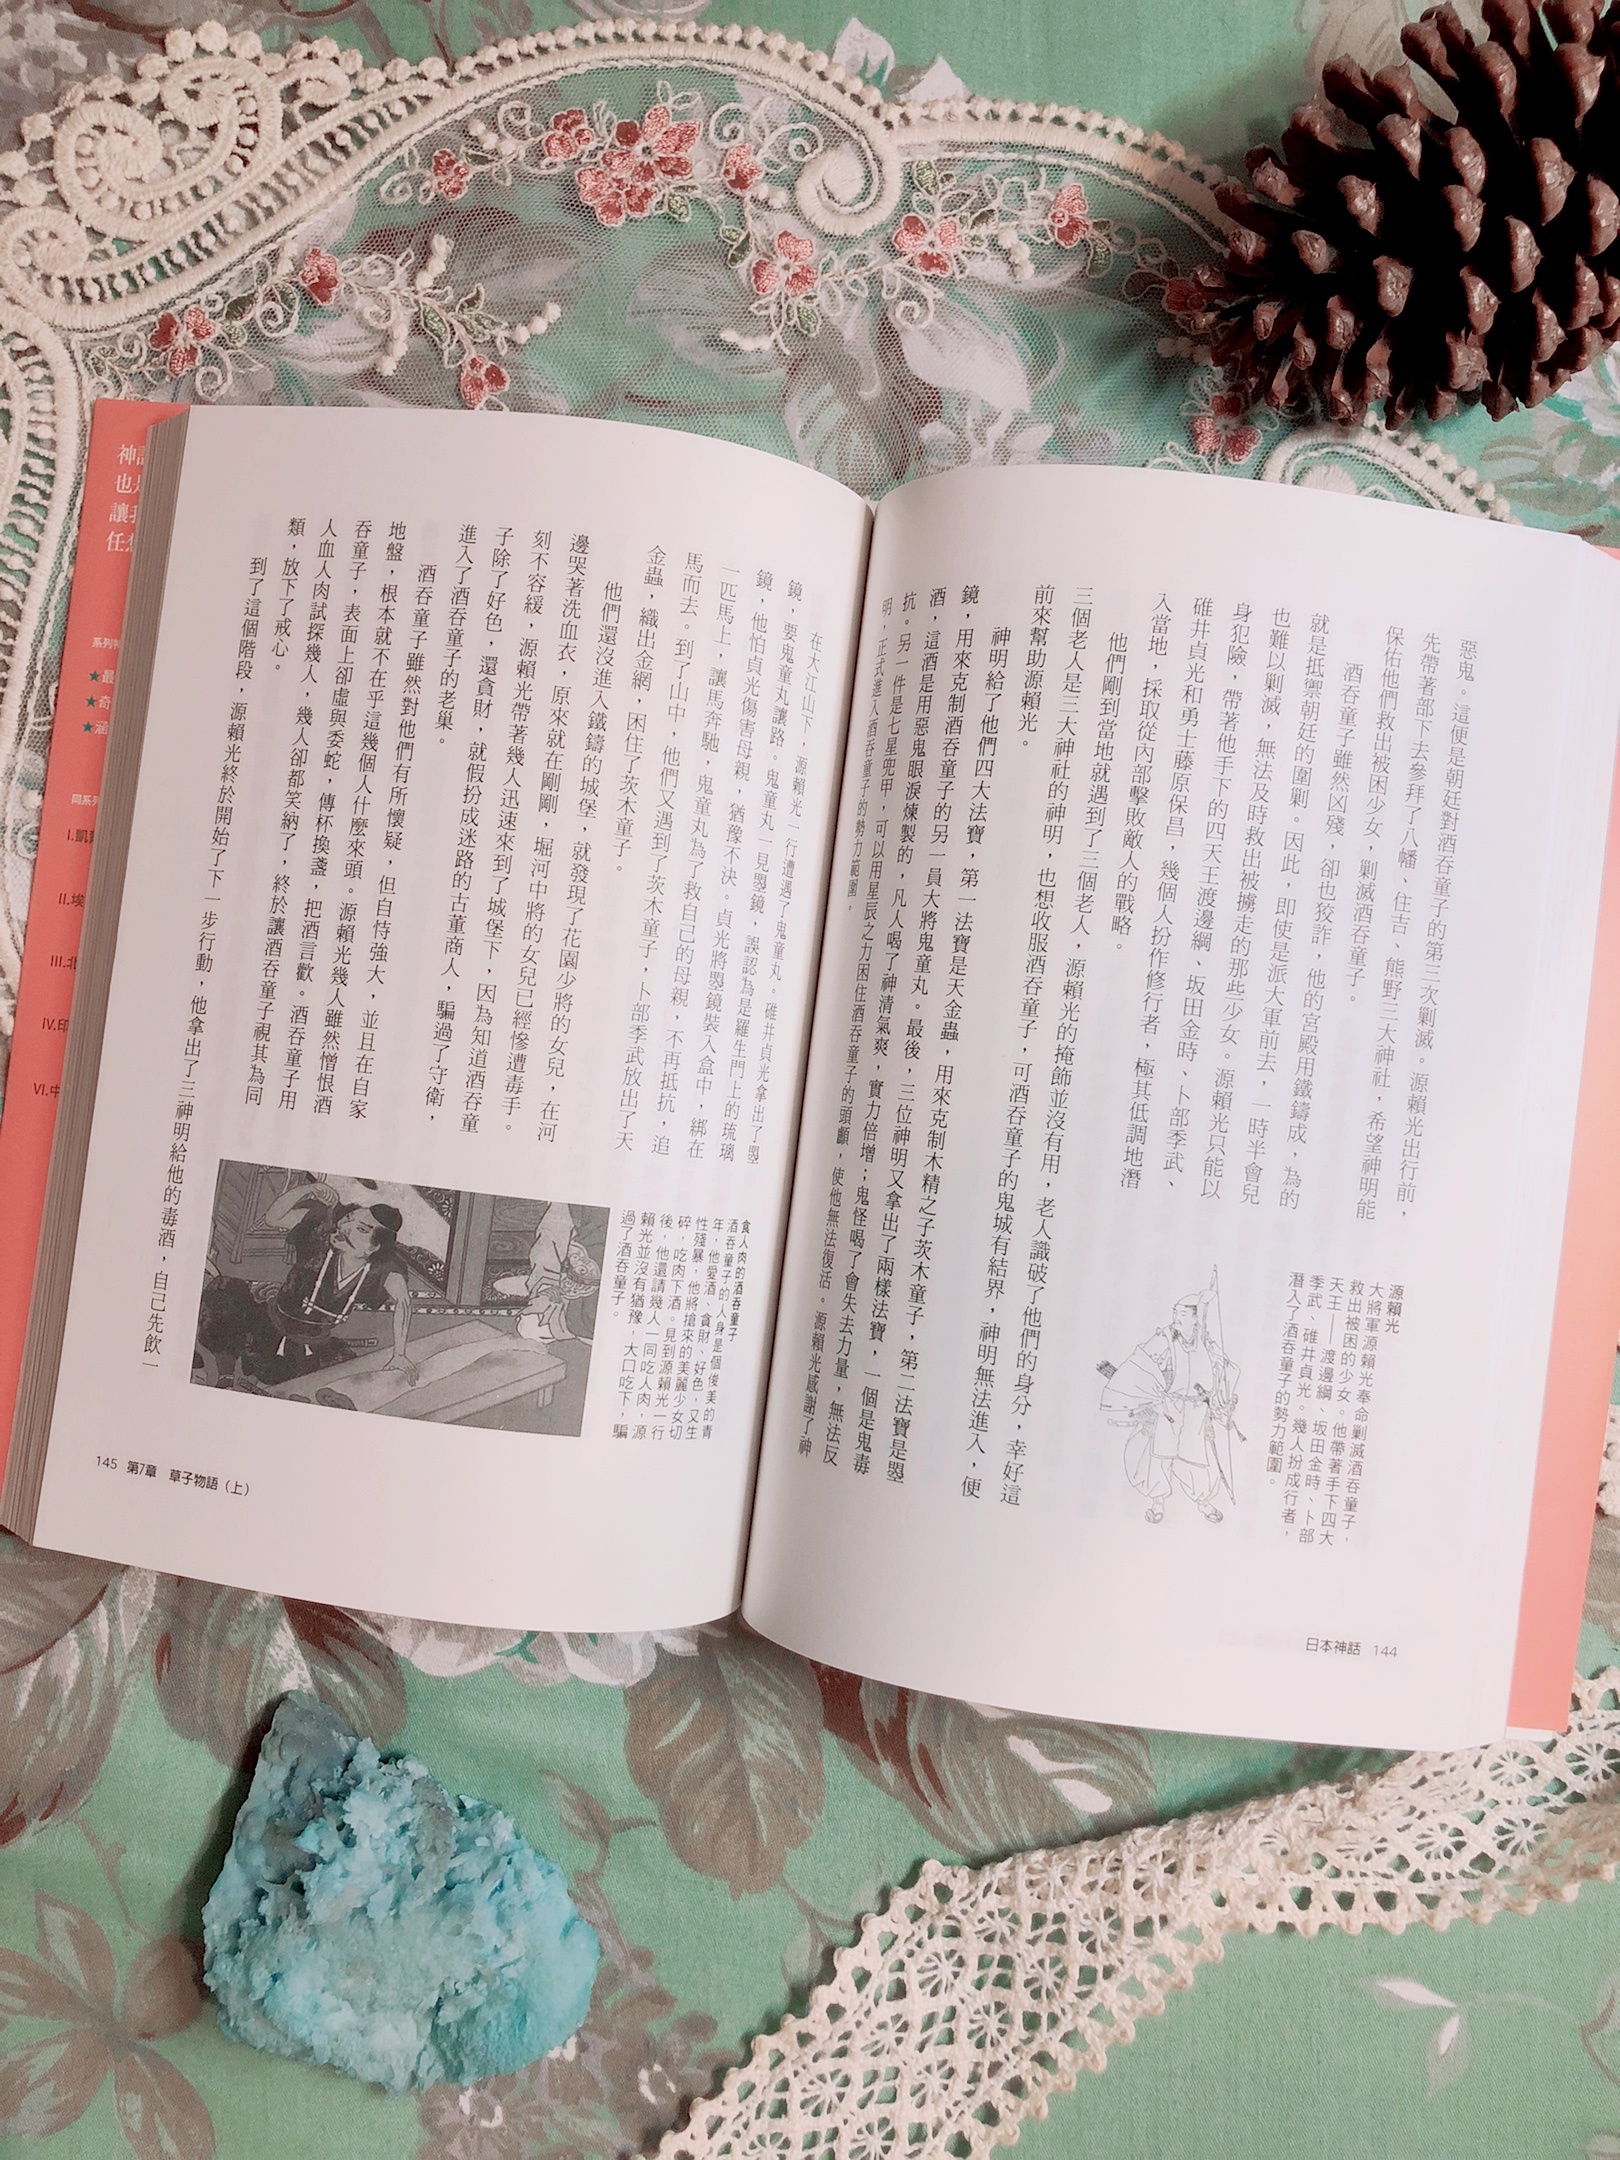 惡鬼。這便是朝廷對酒吞童子的第三次剿滅。源賴光出行前，
先帶著部下去參拜了八幡、住吉、熊野三大神社，希望神明能
保佑他們救出被困少女，剿滅酒吞童子。
酒吞童子雖然凶殘，卻也狡詐，他的宮殿用鐵鑄成，為的
就是抵禦朝廷的圍剿。因此，即使是派大軍前去，一時半會兒
也難以剿滅，無法及時救出被擄走的那些少女。源賴光只能以
身犯險，帶著他手下的四天王渡邊綱、坂田金時、卜部季武、
碓井貞光和勇士藤原保昌，幾個人扮作修行者，極其低調地潛
入當地，採取從內部擊敗敵人的戰略。
他們剛到當地就遇到了三個老人，源賴光的掩飾並沒有用，老人識破了他們的身分，幸好這
三個老人是三大神社的神明，也想收服酒吞童子，可酒吞童子的鬼城有結界，神明無法進入，便
前來幫助源賴光。
神明給了他們四大法寶，第一法寶是天金蟲，用來克制木精之子茨木童子，第二法寶是曌
鏡，用來克制酒吞童子的另一員大將鬼童丸。最後，三位神明又拿出了兩樣法寶，一個是鬼毒
酒，這酒是用惡鬼眼淚煉製的，凡人喝了神清氣爽，實力倍增；鬼怪喝了會失去力量，無法反
抗。另一件是七星兜甲，可以用星辰之力困住酒吞童子的頭顱，使他無法復活。源賴光感謝了神
明，正式進入酒吞童子的勢力範圍。
源賴光
大將軍源賴光奉命剿滅酒吞童子，
救出被困的少女。他帶著手下四大
天王——渡邊綱、坂田金時、卜部
季武、碓井貞光。幾人扮成行者，
潛入了酒吞童子的勢力範圍。
日本神話 144
在大江山下，源賴光一行遭遇了鬼童丸。碓井貞光拿出了曌
鏡，要鬼童丸讓路。鬼童丸一見曌鏡，誤認為是羅生門上的琉璃
鏡，他怕貞光傷害母親，猶豫不決。貞光將曌鏡裝入盒中，綁在
一匹馬上，讓馬奔馳，鬼童丸為了救自己的母親，不再抵抗，追
馬而去。到了山中，他們又遇到了茨木童子，卜部季武放出了天
金蟲，織出金網，困住了茨木童子。
他們還沒進入鐵鑄的城堡，就發現了花園少將的女兒，在河
邊哭著洗血衣，原來就在剛剛，堀河中將的女兒已經慘遭毒手。
刻不容緩，源賴光帶著幾人迅速來到了城堡下，因為知道酒吞童
子除了好色，還貪財，就假扮成迷路的古董商人，騙過了守衛，
進入了酒吞童子的老巢。
酒吞童子雖然對他們有所懷疑，但自恃強大，並且在自家
地盤，根本就不在乎這幾個人什麼來頭。源賴光幾人雖然憎恨酒
吞童子，表面上卻虛與委蛇，傳杯換盞，把酒言歡。酒吞童子用
人血人肉試探幾人，幾人卻都笑納了，終於讓酒吞童子視其為同
類，放下了戒心。
到了這個階段，源賴光終於開始了下一步行動，他拿出了三神明給他的毒酒，自己先飲一
食人肉的酒吞童子
酒吞童子的人身是個俊美的青
年，他愛酒、貪財、好色，又生
性殘暴，他將搶來的美麗少女切
碎，吃肉下酒。見到源賴光一行
後，他還請幾人一同吃人肉，源
賴光並沒有猶豫，大口吃下，騙
過了酒吞童子。
145 第7章 草子物語（上）
也是
任想
★最
★奇
★涵
同系列
II.埃
III.北
IV.印
VI.中